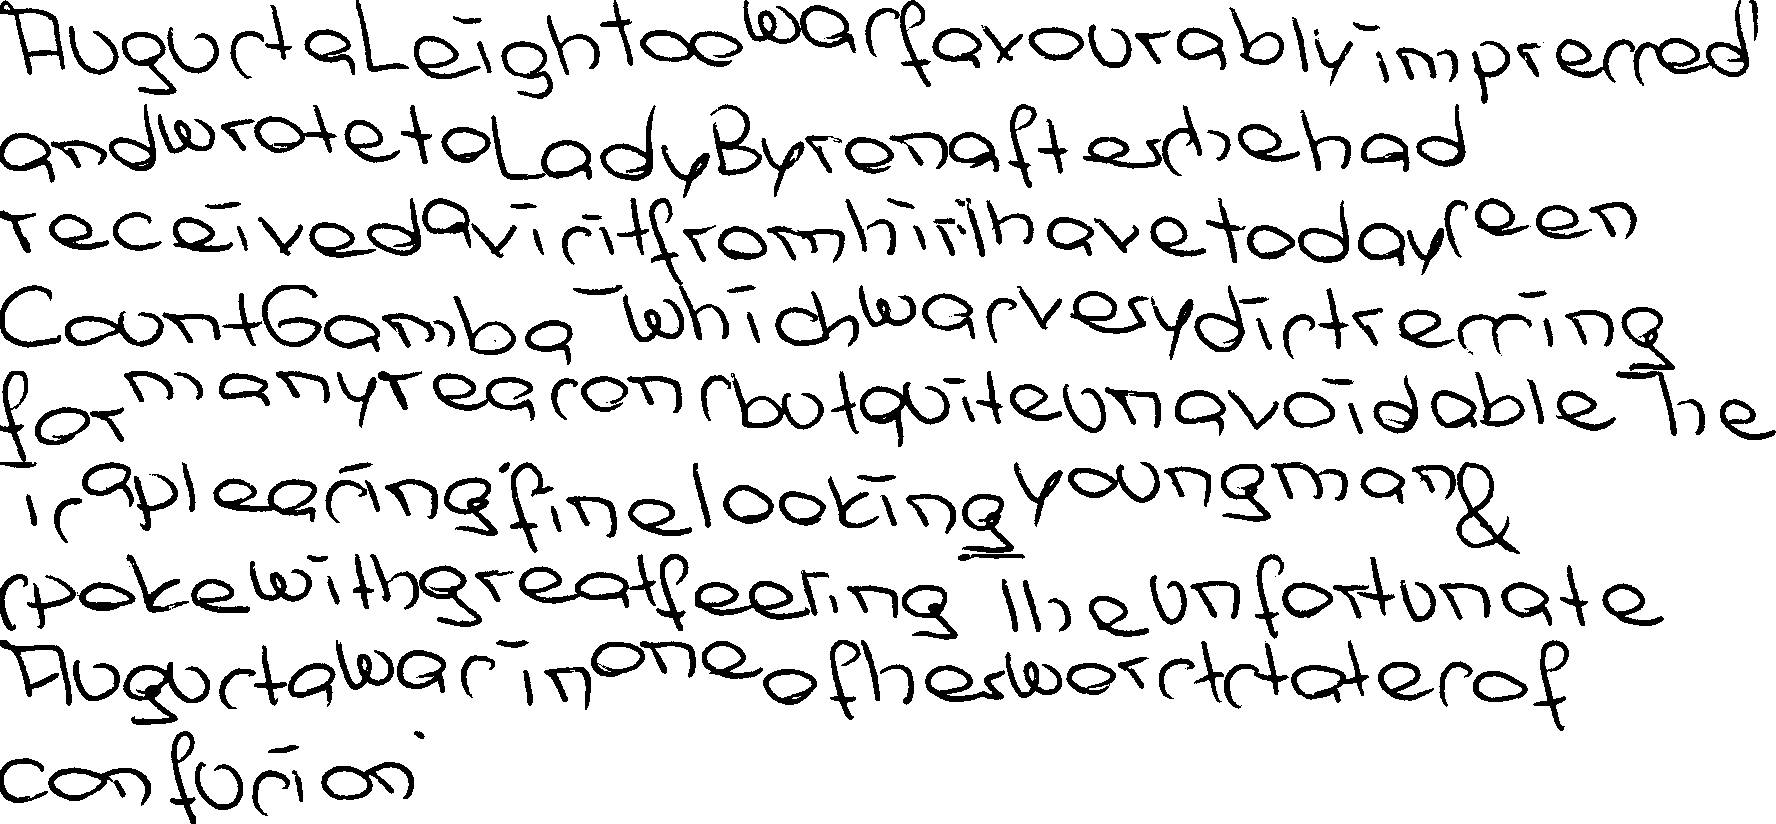 Augusta Leigh too was favourably impressed
and wrote to Lady Byron after she had
received a visit from his 'I have today seen
Count Gamba which was very distressing
for many reasons but quite unavoidable he
is a pleasing fine looking young man &
spoke with great feeling The unfortunate
Augusta was in one of her worst states of
confusion